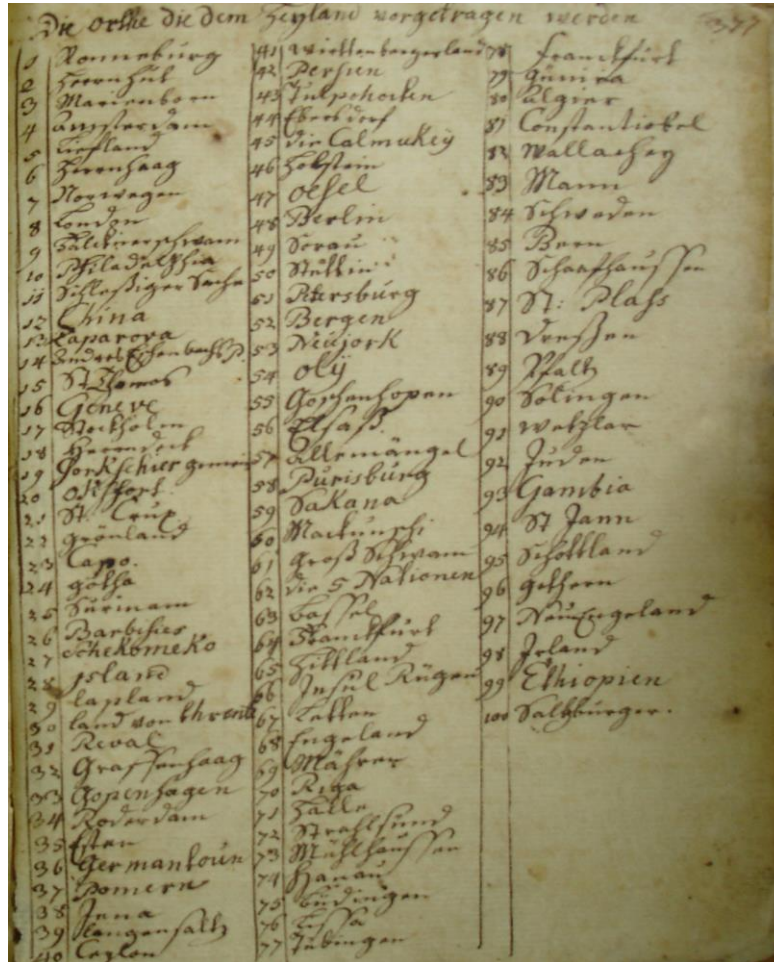 Die orthe die dem Heyland vorgetragen werden
377
1 Ronneburg
2 Herrnhut
3 Marienborn
4 Amsterdam
5 Liefland
6 Herrnhaag
7 Norwegen
8 London
9 Falcknerschwam
10 Philadelphia
11 Schlesiger Sache
12 China
13 Laparova
14 Andreas Eschenbachs
15 St Thomas
16 Geneve
17 Stockholm
18 Herrendeck
19 Jorkschier gemein
20 Oxfort
21 St. Crux
22 Grönland
23 Capo.
24 Gotha
25 Surinam
26 Barbesies
27 Schekomeko
28 Island
29 lapland
30 land von
31 Reval
32 Graffenhaag
33 Copenhagen
34 Roderdam
35 Esten
36 Germantoun
37 Pomern
38 Jena
39 Langensaltz
40 Ceylon
41 Wirttenbergerland
42 Persien
43 Tulpohocken
44 Ebersdorf
45 die Calmukey
46 Holstein
47 Oesel
48 Berlin
49 Sorau
50 Stettin
51 Petersburg
52 Bergen
53 Neujork
54 Oly
55 Goschenhopen
56 Elsass
57 Allemängel
58 Purisburg
59 Sakana
60 Mackunschi
61 Groß Schwam
62 die 5 Nationen
63 Cassel
64 Franckfurt
65 Hittland
66 Insul Rügen
67 Letten
68 Engeland
69 Mähren
70 Riga
71 Halle
72 Strahlsund
73 Mühlhaussen
74 Hanau
75 Büdingen
76 Lissa
77 Tübingen
78 Franckfurt
79 Guinea
80 algier
81 Constantinobel
82 Wallachey
83 Mann
84 Schweden
85 Bern
86 Schaafhaussen
87 St: Plass
88 Dreßen
89 Pfaltz
90 Solingen
91 Wetzlar
92 Juden
93 Gambia
94 St Jann
95 Schottland
96 Gethern
97 NeuEngeland
98 Irland
99 Ethiopien
100 Saltzburger.